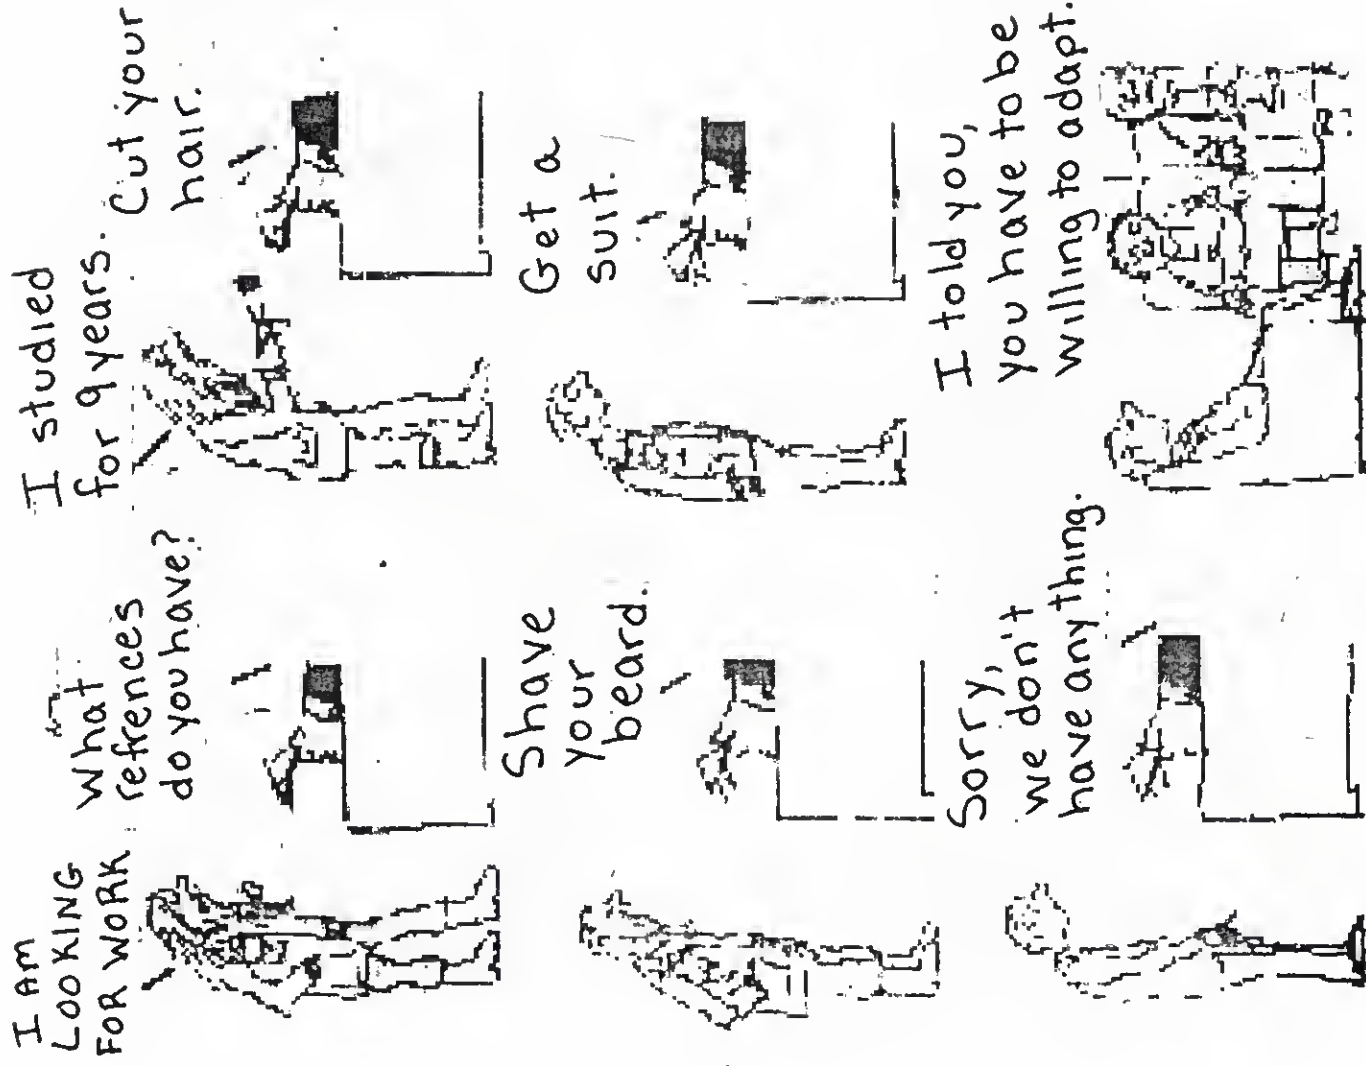 I AM
LOOKING
FOR WORK
What
refrences
do you have?
I studied
for 9 years.
Cut your
hair.
Shave
your
beard.
Get a
suit.
Sorry,
we don't
have anything.
I told you,
you have to be
willing to adapt.